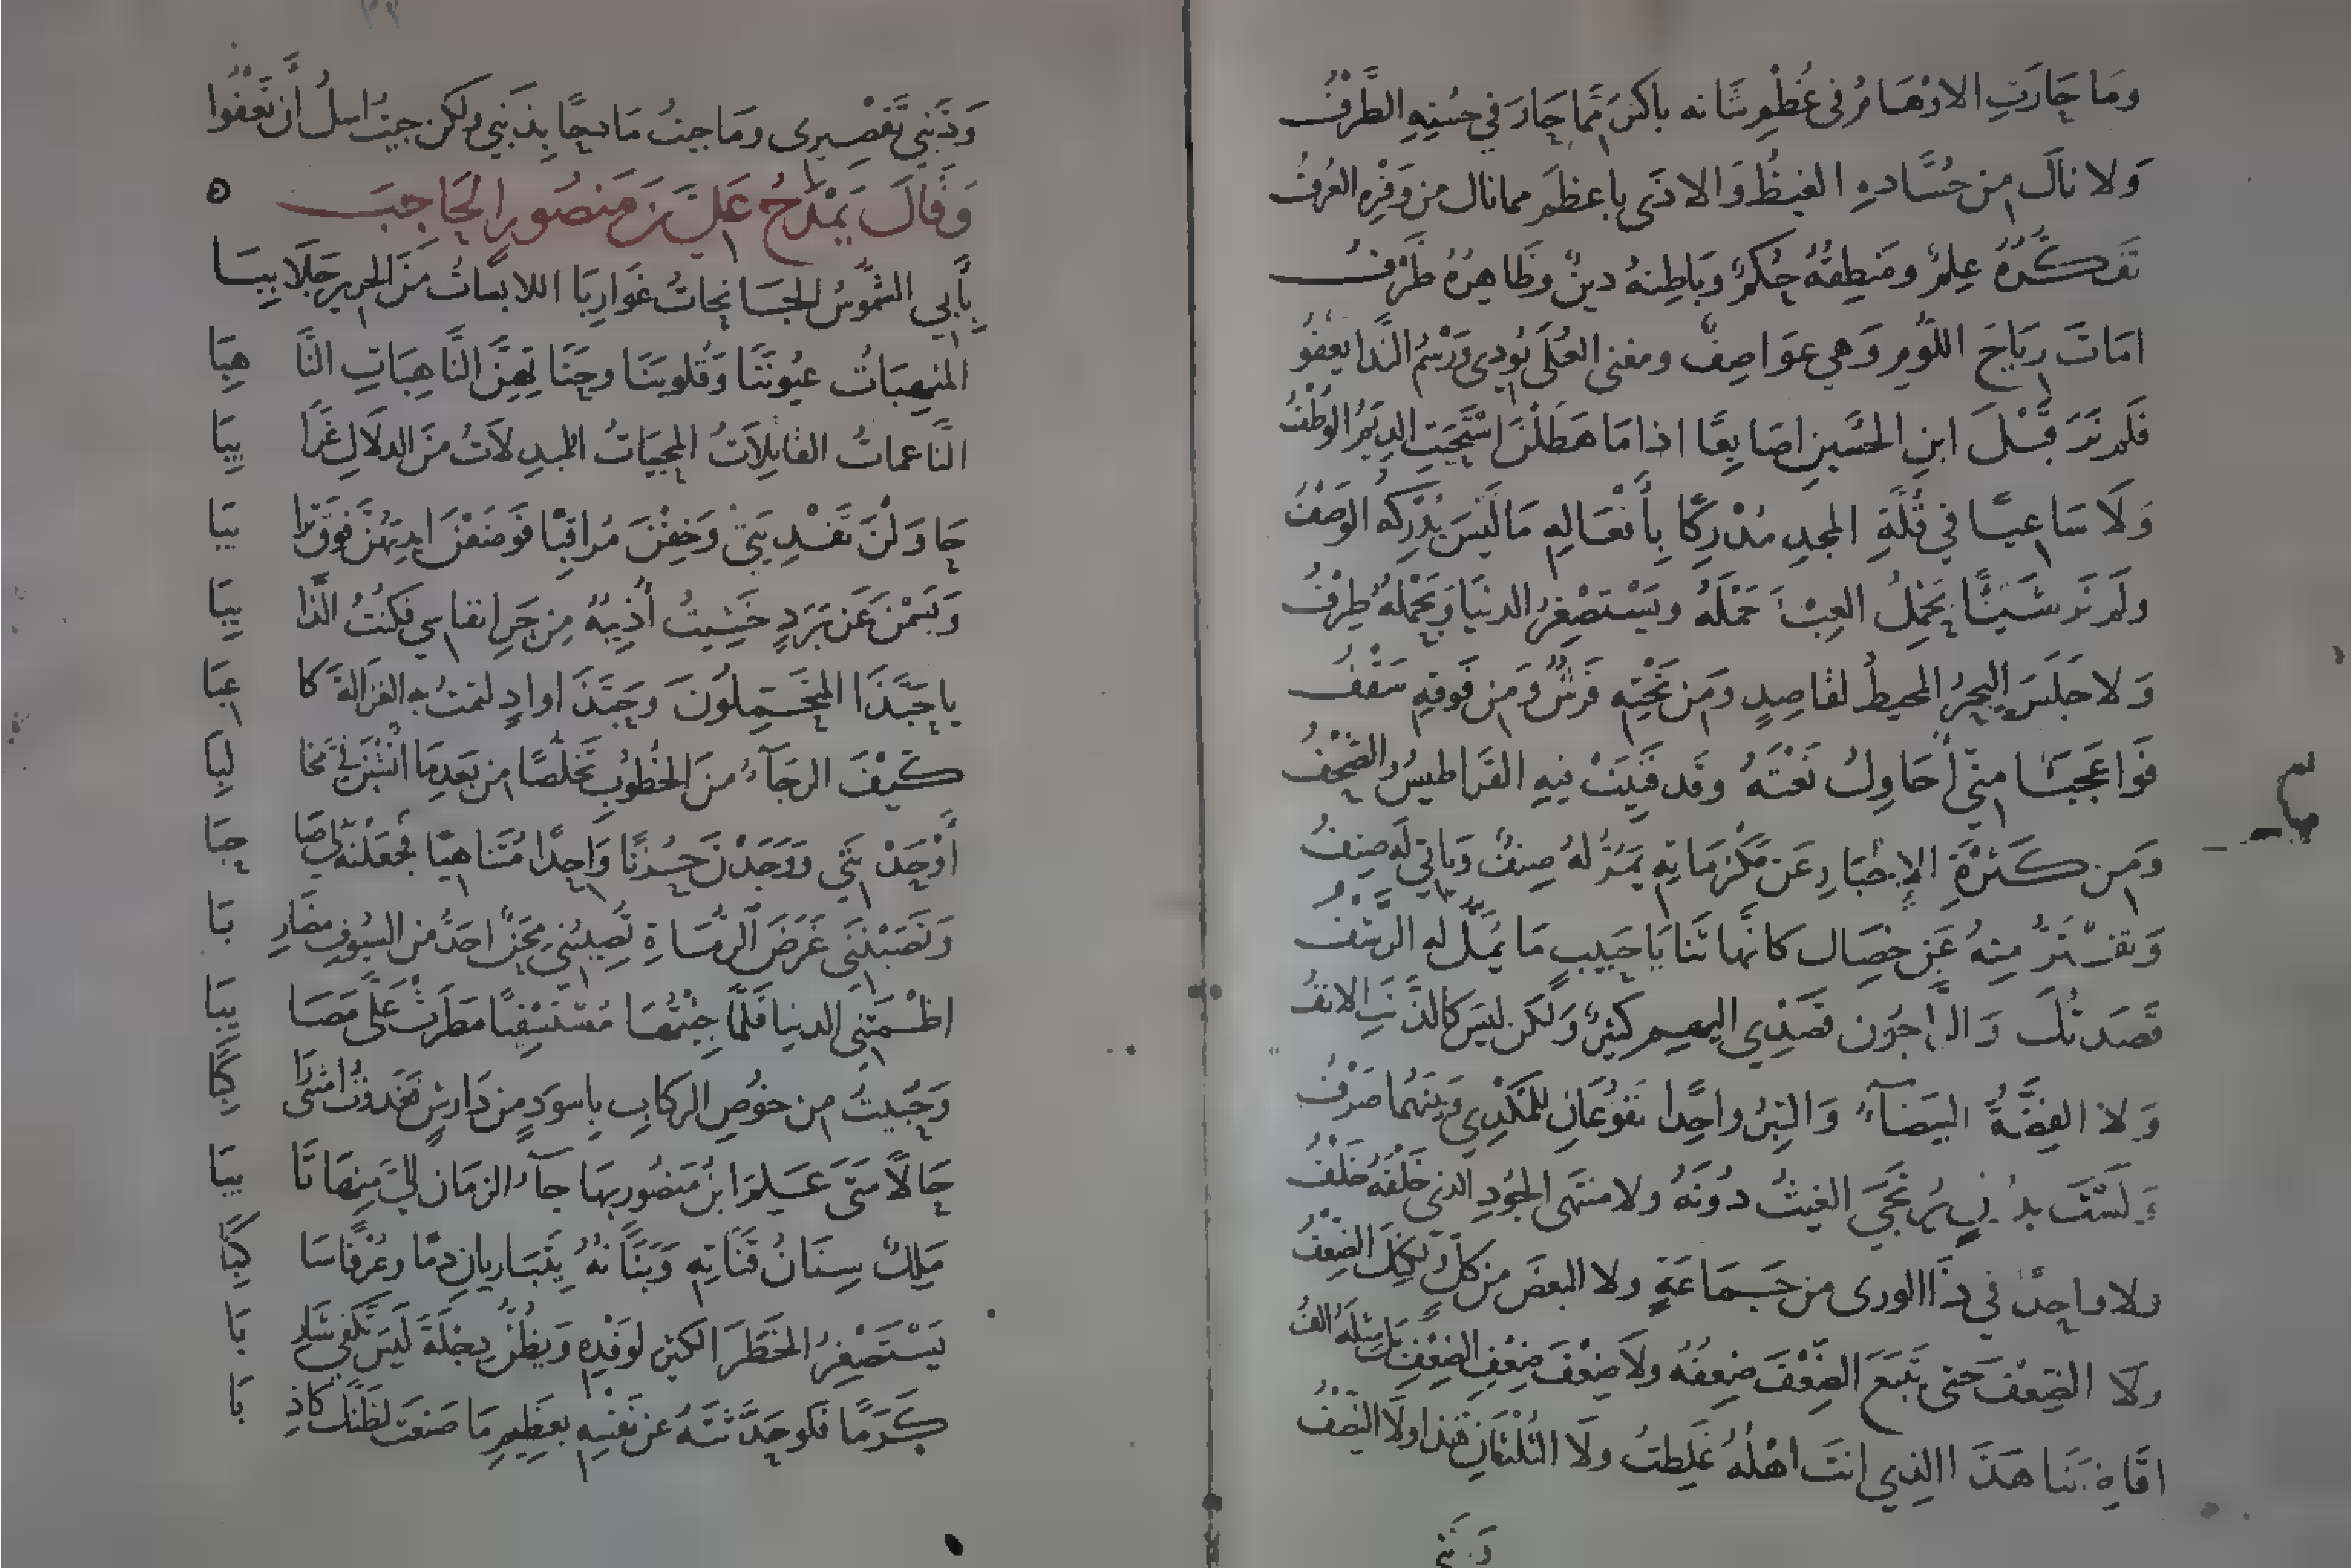 وَمَا حَارَتِ الاوْهَامُ فى عُظْمِ شَانه باكثرَ مَّما حَارَ في حُسْنِهِ الطَّرْفُ
وَلا نالَ مِن حُسَّادهِ الغيظُ وَالاذَى باعظمَ مما نال من وَفْرِهِ العُرفُ
تَفَكُّرُهُ عِلمٌ ومَنطِقهُ حُكمٌ وَبَاطِنهُ دينٌ وظَاهِرُهُ ظَرْفُ
امَاتَ رِيَاحَ اللَّومِ وَهي عوَاصِفٌ ومغنى العُلَى يُودِى وَرَسْمُ النَّدا يعفُو
فَلم نَرَ قَبْلَ ابنِ الحسَينِ اصَابِعًا اذا مَا هَطَلْنَ اسْتَحْيَتِ الدِيَمُ الوُطْفُ
وَلَا سَاعِيًا في قُلَّةِ المجدِ مُدْرِكًا بِأَفعَالِهِ مَا لَيسَ يُدْرِكهُ الوَصْفُ
ولَم نَرَ شَيئًا يَحْمِلُ العِبْءَ حَمْلَهُ ويَسْتَصْغِرُ الدنيَا وَيَحْملهُ طِرْفُ
وَلا جَلَسَ البحرُ المحيطُ لقاصِدٍ وَمِن تَحْتِهِ فَرْشٌ وَمِن فَوقِهِ سَقْفُ
فَوَا عَجَبَا مِنّي أُحَاوِلُ نَعْتَهُ وقَد فَنِيَتْ فِيهِ القَراطيسُ وَالصُّحْفُ
وَمِن كَثْرَةِ الإخبَارِ عَن مَكْرُمَاتِهِ يَمُرُّ لهُ صِنفٌ وَيَاتي لَه صِنفُ
وَتفْتَرُّ مِنهُ عَن خِصَال كانَّها ثنَايَا حَبِيبٍ مَا يُمَلُّ له الرَّشْفُ
قَصَدتُكَ وَالرَّاجُون قَصْدِي اليهم كثيرٌ وَلكن ليسَ كالذَّنَبِ الانفُ
وَلا الفِضَّةُ البيَضَآءُ وَالتِبرُ واحِدًا نفُوعَانِ للمُكْدِي وَبينَهُما صَرْفُ
وَلَسْتَ بدُونٍ يُرتَجَى الغيثُ دُونَهُ ولا منتهَى الجُودِ الذي خَلْفَهُ خَلْفُ
ولا واحِدًا في ذَا الورى من جَمَاعَةٍ ولا البَعضَ مِن كلٍّ وَلكِنَّكَ الضِعْفُ
ولا الضِعْفَ حَتى يَتبَعَ الضِّعْفَ ضِعفُهُ ولَا ضِعْفَ ضِعْفِ الضِعْفِ بَل مِثلَهُ الفُ
اقَاضِيَنَا هَذَا الذِي انتَ اهْلُهُ غَلِطتُ ولَا الثُلثَانِ هَذَا ولَا النِّصْفُ
وَذَنْبي
وَذَنْبِي تَقصِيرى ومَا جئتُ مَادحًا بِذَنبي وَلكن جئتُ اسلُ أَن تَعفُوا
وَقَالَ يَمْدَحُ عَليَّ بنَ مَنصُورٍ الحَاجِبَ
بِأَبي الشُّموسُ الجَانحاتُ غوَارِبَا اللابِسَاتُ مِنَ الحَرِيرِ جَلَا بِيبَا
المنهِبَاتُ عيُونَنَا وَقُلوبَنَا وجَنَاتِهِنَّ النَّاهِبَاتِ النَّا هِبَا
النَّاعماتُ القَاتِلَاتُ المحيِيَاتُ المبدِلَاتُ مِنَ الدلَالِ غَرَا يِبَا
حَاوَلْنَ تَفْدِيَتِي وَخِفْنَ مُرَاقِبًا فَوَضَعْنَ ايدِيَهُنَّ فَوْقَ تَرَا يبَا
وَبَسَمْنَ عَن بَرَدٍ خَشِيتُ أُذِيبُهُ مِن حَرِ انفاسي فكنتُ الذَّا يِبَا
يا حَبَّذَا المُتَحَمِّلُونَ وَحَبَّذَا وادٍ لثمتُ بهِ الغزَالةَ كَا عِبَا
كَيْفَ الرجَآءُ منَ الخُطُوبِ تَخَلُّصًا مِن بَعدِ مَا انْشَبْنَ فيَّ مَخَا لِبَا
أَوْحَدْنَنِي وَوَجَدْنَ حُزْنًا وَاحِدًا مُتَناهِيًا فَجعَلْنَهُ لي صَا حِبَا
وَنَصَبْنَنِي غَرَضَ الرُّمَاةِ تُصِيبُنِي مِحَنٌ احَدُّ منَ السيُوفِ مضَارِ بَا
اظْمَتْنِي الدنيا فَلَمَّا جِئْتُهَا مُسْتَسْقِيًا مَطَرَتْ عَلَيَّ مَصَا يِبَا
وَحُبِيتُ من خوُصِ الركَابِ بِاسوَدٍ مِن دَارِشٍ فغَدَوْتُ امْشِي رَا كِبًا
حَالًا مَتَى عَلِمَ ابنُ مَنصُورٍ بِهَا جآءَ الزمَان إليَّ مِنهَا تَا يبَا
مَلِكٌ سِنَانُ قَنَاتِهِ وَبَنَانُهُ يَتَبَارِيَانِ دمًا وعُرْفًا سَا كِبًا
يَسْتَصْغِرُ الخَطَرَ الكبيرَ لِوَفْدِهِ وَيَظُنُّ دِجْلَةَ لَيسَ تَكْفي شَارِ بَا
كَرَمًا فلَو حَدَّثتَهُ عَن نفسِهِ بعَظِيمِ مَا صَنعَت لظَنَّكَ كاذِ بَا